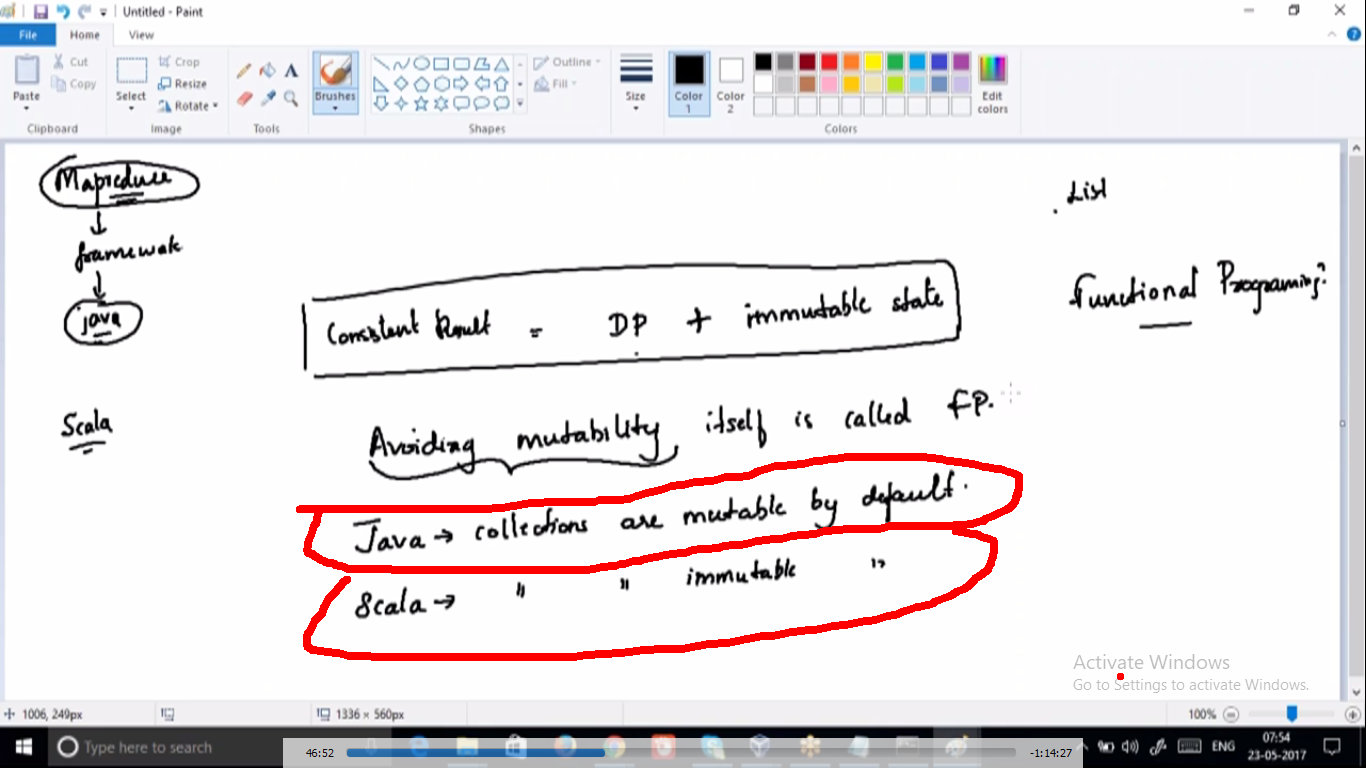 Untitled - Paint
File Home View
Paste Cut Copy Select Crop Resize Rotate Brushes Outline Fill Size Color 1 Color 2 Edit colors
Clipboard Image Tools Shapes Colors
Mapreduce
framewok
java
Scala
List
Functional Programing?
Consistent Result = DP + immutable state
Avoiding mutability itself is called FP.
Java → collections are mutable by default.
Scala → " " immutable "
Activate Windows
Go to Settings to activate Windows.
1006, 249px 1336 × 560px 100%
Type here to search 46:52 -1:14:27 ENG 07:54
23-05-2017